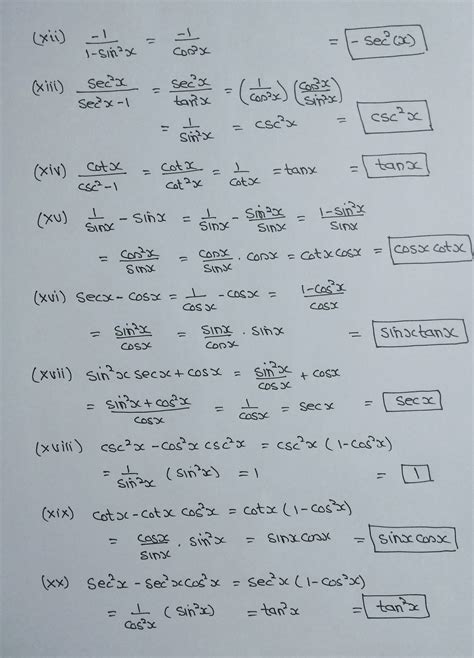 (xii) -1/(1-sin²x) = -1/cos²x = -sec²(x)
(xiii) sec²x/(sec²x-1) = sec²x/tan²x = (1/cos²x)(cos²x/sin²x)
= 1/sin²x = csc²x = csc²x
(xiv) cotx/(csc²-1) = cotx/cot²x = 1/cotx = tanx = tanx
(xv) 1/sinx - sinx = 1/sinx - sin²x/sinx = (1-sin²x)/sinx
= cos²x/sinx = cosx/sinx . cosx = cotxcosx = cosxcotx
(xvi) secx-cosx = 1/cosx - cosx = (1-cos²x)/cosx
= sin²x/cosx = sinx/cosx . sinx = sinxtanx
(xvii) sin²x secx + cosx = sin²x/cosx + cosx
= (sin²x+cos²x)/cosx = 1/cosx = secx = secx
(xviii) csc²x-cos²x csc²x = csc²x(1-cos²x)
= 1/sin²x (sin²x) = 1 = 1
(xix) cotx-cotx cos²x = cotx(1-cos²x)
= cosx/sinx . sin²x = sinxcosx = sinxcosx
(xx) sec²x-sec²xcos²x = sec²x(1-cos²x)
= 1/cos²x (sin²x) = tan²x = tan²x